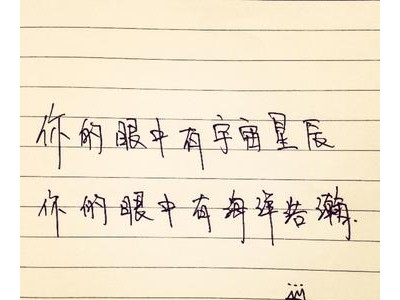 你的眼中有宇宙星辰
你的眼中有海洋浩瀚.